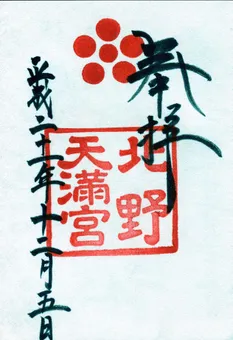 奉拝
北野
天満宮
平成二十二年十二月五日